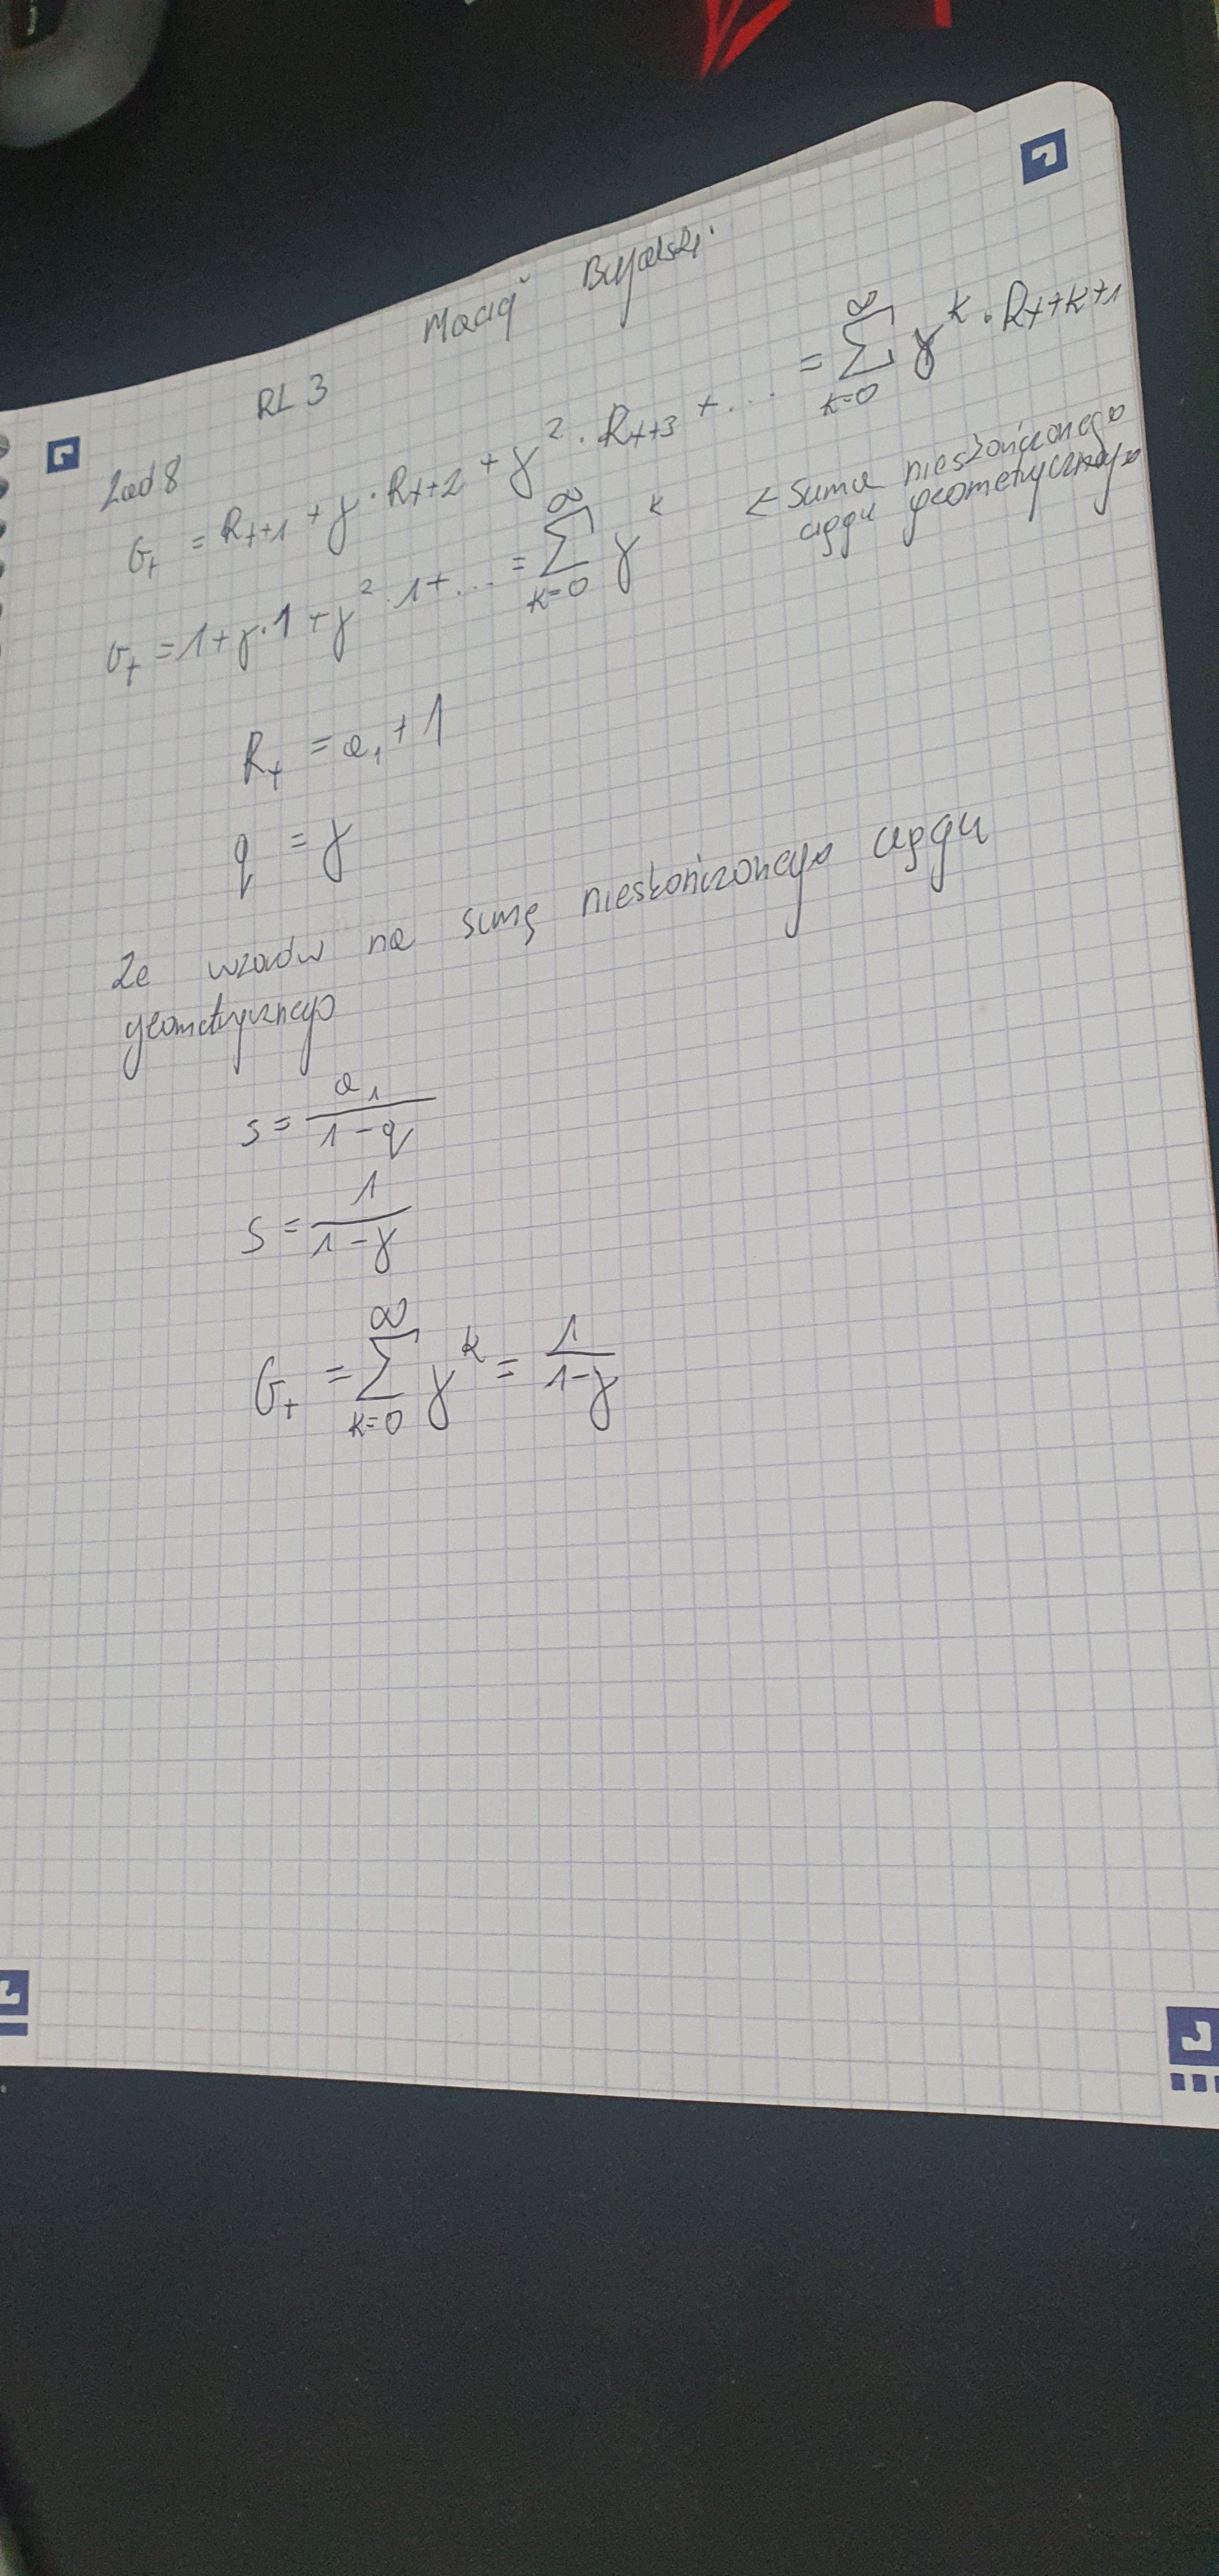 Maciej Bujalski
RL 3
Zad 8
G_t = R_{t+1} + γ · R_{t+2} + γ^2 · R_{t+3} + ... = \sum_{k=0}^{∞} γ^k · R_{t+k+1}
G_t = 1 + γ · 1 + γ^2 · 1 + ... = \sum_{k=0}^{∞} γ^k < suma nieskończonego
ciągu geometrycznego
R_t = a_1 + 1
q = γ
Ze wzorów na sumę nieskończonego ciągu
geometrycznego
s = \frac{a_1}{1-q}
s = \frac{1}{1-γ}
G_t = \sum_{k=0}^{∞} γ^k = \frac{1}{1-γ}